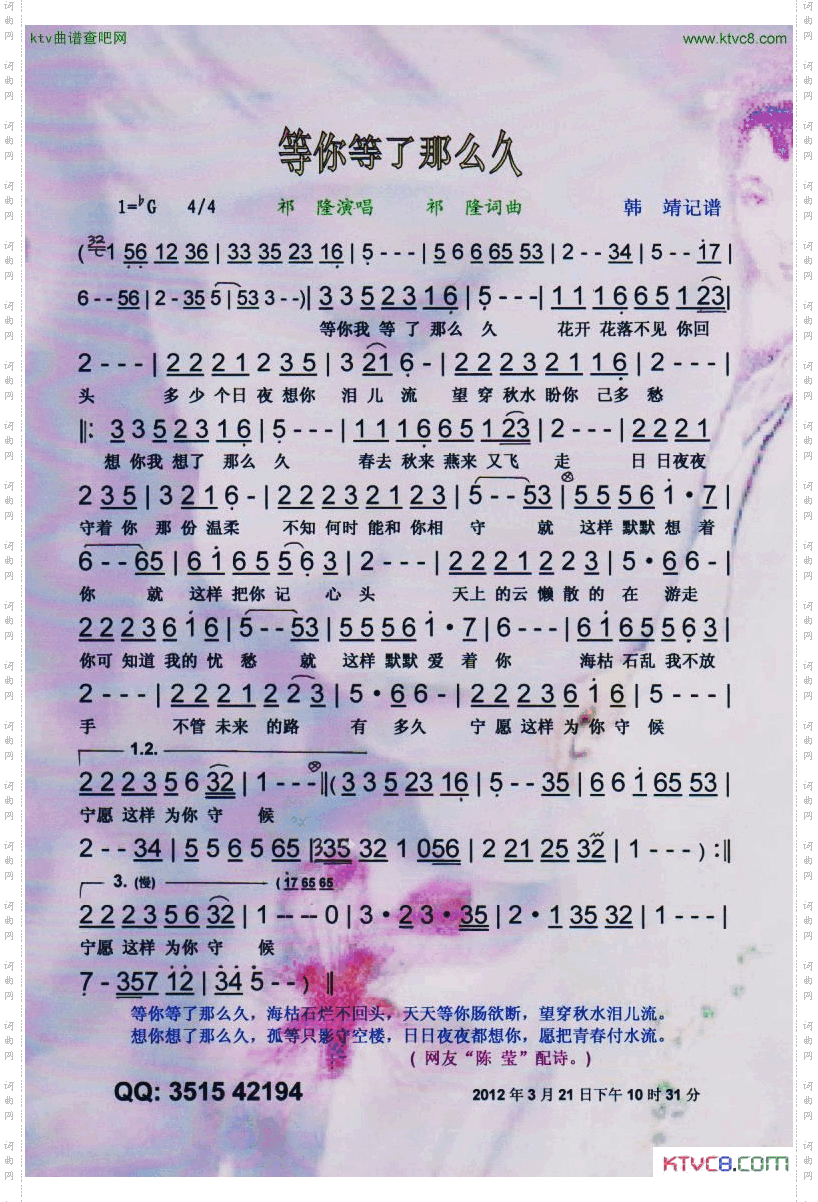 ktv曲谱查吧网 www.ktvc8.com
等你等了那么久
1=♭G 4/4 祁 隆演唱 祁 隆词曲 韩 靖记谱
(321 56 12 36 | 33 35 23 16 | 5 - - - | 5 6 6 65 53 | 2 - - 34 | 5 - - 17 |
6 - - 56 | 2 - 35 5 | 53 3 - -)| 3 3 5 2 3 1 6 | 5 - - - | 1 1 1 6 6 5 1 23 |
等你我 等 了 那么 久 花开 花落不见 你回
2 - - - | 2 2 2 1 2 3 5 | 3 21 6 - | 2 2 2 3 2 1 1 6 | 2 - - - |
头 多 少 个日 夜 想你 泪 儿 流 望 穿 秋水 盼你 己多 愁
‖: 3 3 5 2 3 1 6 | 5 - - - | 1 1 1 6 6 5 1 23 | 2 - - - | 2 2 2 1
想 你我 想了 那么 久 春去 秋来 燕来 又飞 走 日 日夜夜
2 3 5 | 3 2 1 6 - | 2 2 2 3 2 1 2 3 | 5 - - 53 | 5 5 5 6 1 • 7 |
守着 你 那 份 温柔 不知 何时 能和 你相 守 就 这样 默默 想 着
6 - - 65 | 6 1 6 5 5 6 3 | 2 - - - | 2 2 2 1 2 2 3 | 5 • 6 6 - |
你 就 这样 把你 记 心 头 天上 的云 懒 散 的 在 游走
2 2 2 3 6 1 6 | 5 - - 53 | 5 5 5 6 1 • 7 | 6 - - - | 6 1 6 5 5 6 3 |
你可 知道 我的 忧 愁 就 这样 默默 爱 着 你 海枯 石乱 我不放
2 - - - | 2 2 2 1 2 2 3 | 5 • 6 6 - | 2 2 2 3 6 1 6 | 5 - - - |
手 不管 未来 的路 有 多久 宁 愿 这样 为 你 守 候
1.2.
2 2 2 3 5 6 32 | 1 - - - ‖( 3 3 5 23 16 | 5 - - 35 | 6 6 1 65 53 |
宁愿 这样 为你 守 候
2 - - 34 | 5 5 6 5 65 | 335 32 1 056 | 2 21 25 32 | 1 - - - ) :‖
3. (慢) ( 17 65 65
2 2 2 3 5 6 32 | 1 -- -- 0 | 3 • 2 3 • 35 | 2 • 1 35 32 | 1 - - - |
宁愿 这样 为你 守 候
7 - 357 12 | 34 5 - - ) ‖
等你等了那么久，海枯石烂不回头，天天等你肠欲断，望穿秋水泪儿流。
想你想了那么久，孤等只影守空楼，日日夜夜都想你，愿把青春付水流。
( 网友“陈 莹”配诗。)
QQ: 3515 42194 2012 年 3 月 21 日下午 10 时 31 分
KTVC8.COM